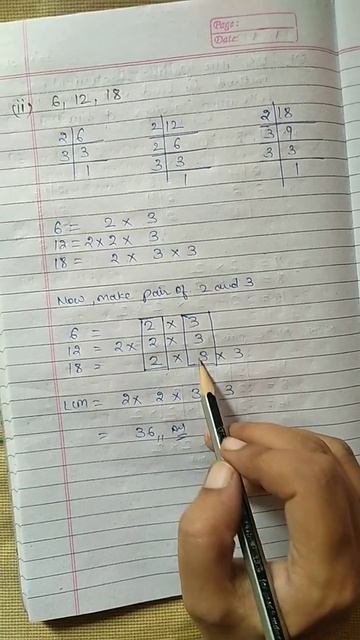 Page:
Date:
(ii) 6, 12, 18
2 6
3 3
1
2 12
2 6
3 3
1
2 18
3 9
3 3
1
6 = 2 × 3
12 = 2 × 2 × 3
18 = 2 × 3 × 3
Now, make pair of 2 and 3
6 = 2 × 3
12 = 2 × 2 × 3
18 = 2 × 3 × 3
LCM = 2 × 2 × 3 3
= 36,,